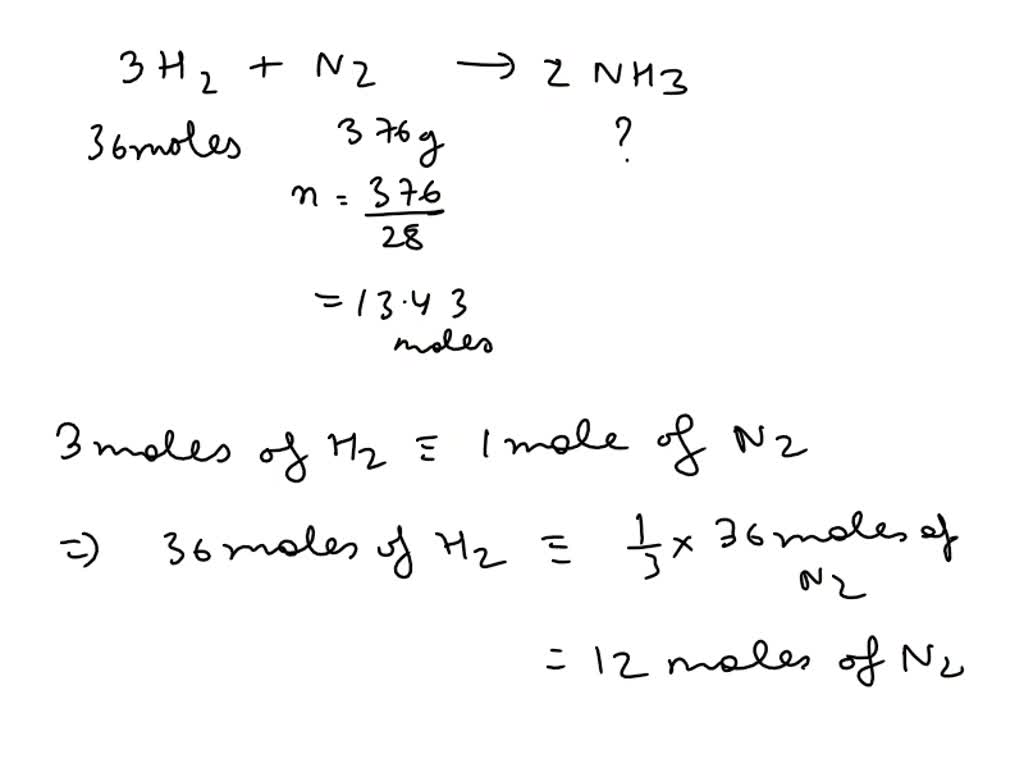 3H2 + N2 → 2 NH3
36moles 376g ?
n = 376/28
= 13.43
moles
3 moles of H2 ≡ 1 mole of N2
⇒ 36 moles of H2 ≡ 1/3 × 36 moles of
N2
= 12 moles of N2